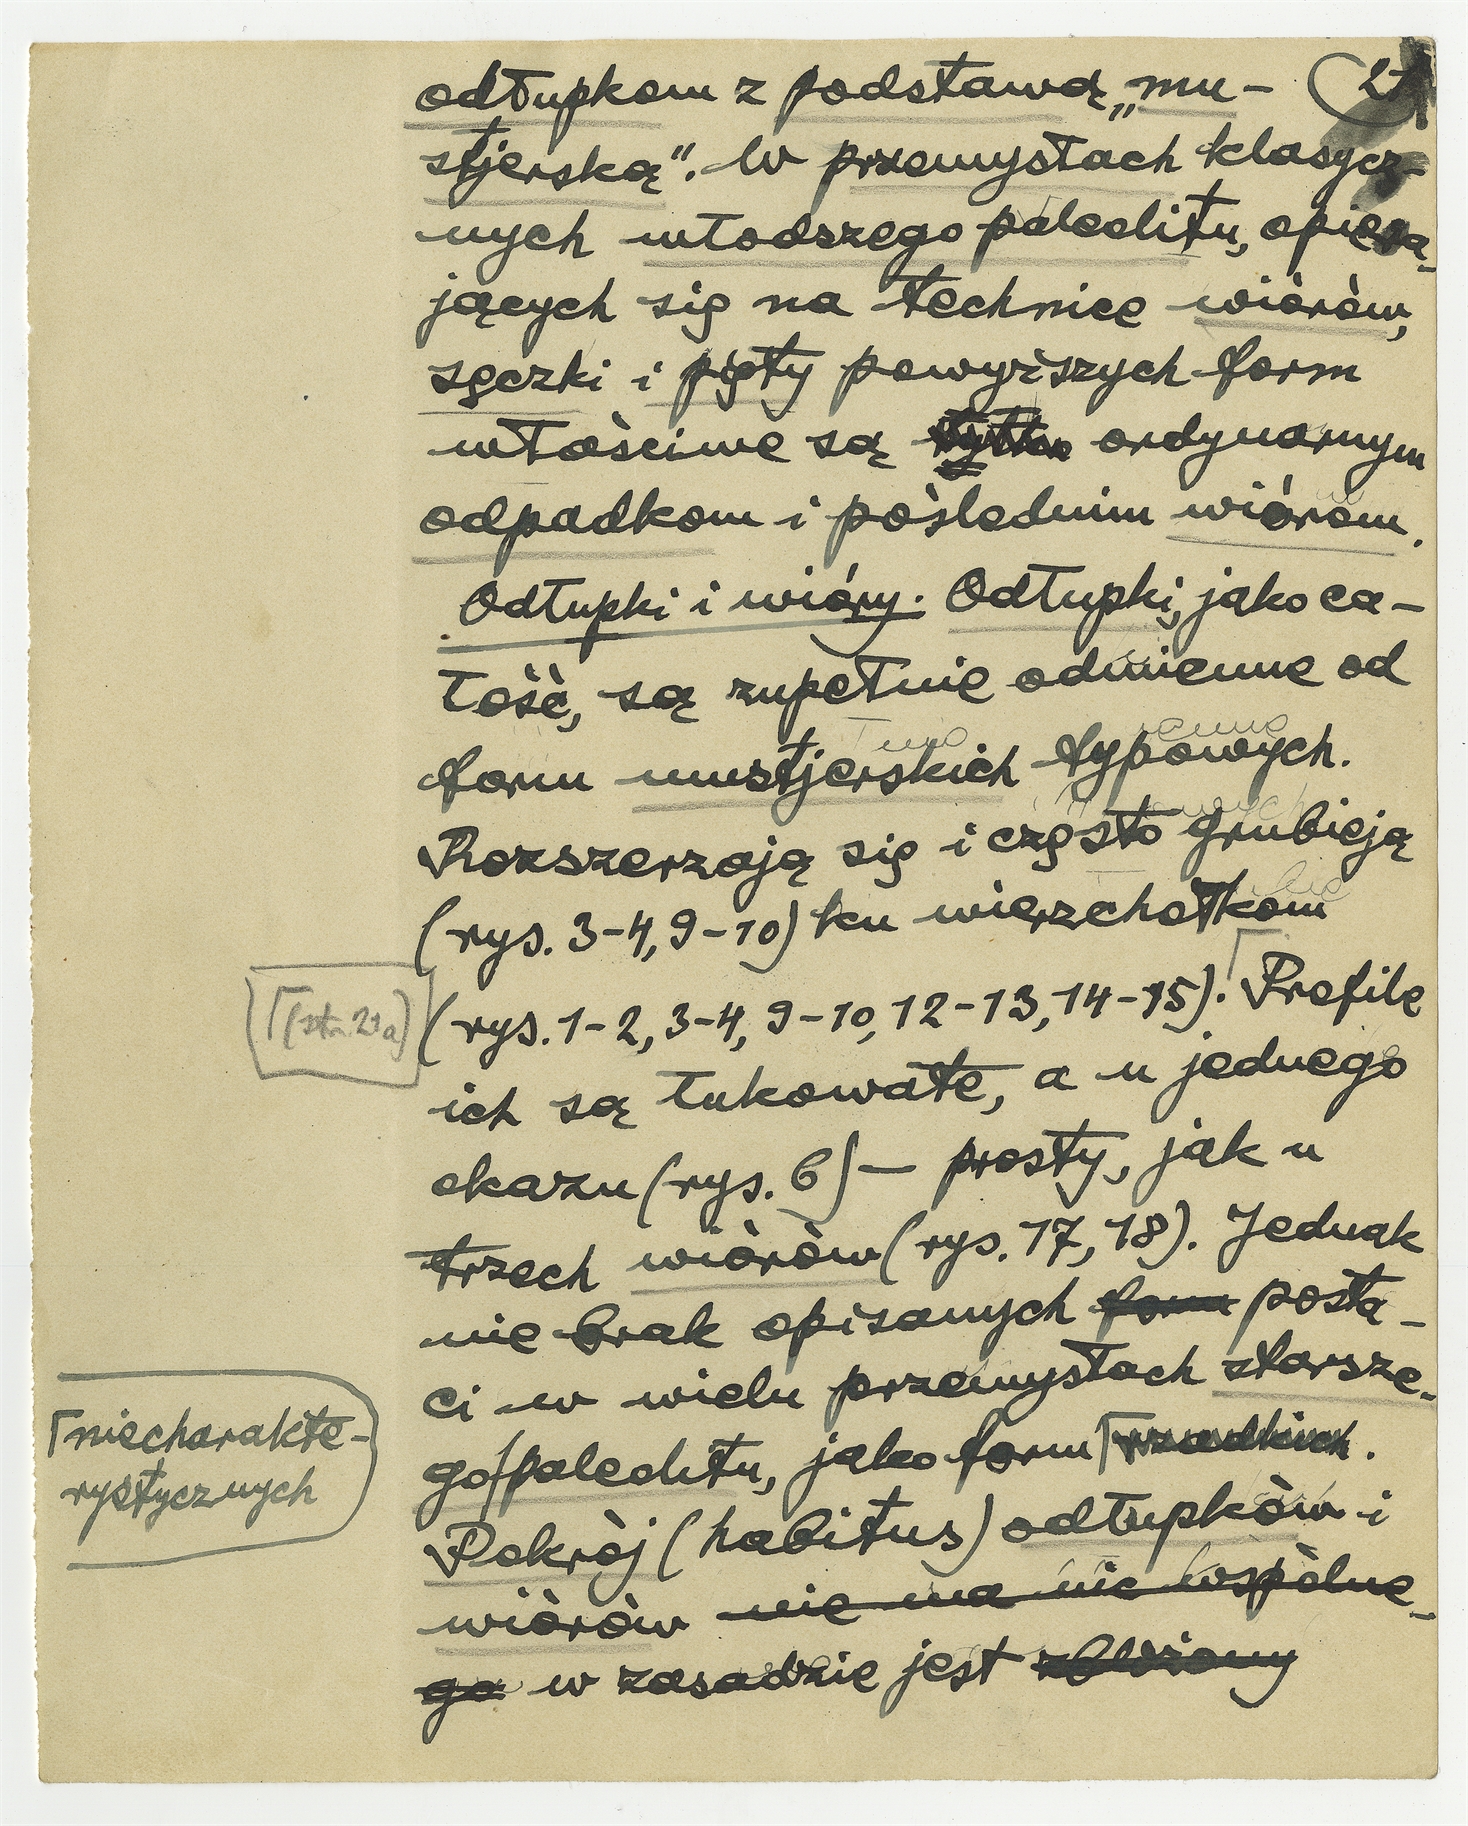 odłupkom z podstawą „mu- 21
stjerską". W przemysłach klasycz-
nych młodszego paleolitu, opiera-
jących się na technice wiórów,
sęczki i pięty powyższych form
właściwe są tylko ordynarnym
odpadkom i poślednim wiórom.
Odłupki i wióry. Odłupki, jako ca-
łość, są zupełnie odmienne od
form mustjerskich typowych.
Rozszerzają się i często grubieją
(rys. 3-4, 9-10) ku wierzchołkom
(rys. 1-2, 3-4, 9-10, 12-13, 14-15). ⌈Profile
⌈(str. 21a)
ich są łukowate, a u jednego
okazu (rys. 6) — prosty, jak u
trzech wiórów (rys. 17, 18). Jednak
nie brak opisanych form posta-
ci w wielu przemysłach starsze-
go paleolitu, jako form ⌈rzadkich.
⌈niecharakte-
rystycznych
Pokrój (habitus) odłupków i
wiórów nie ma nic wspólne-
go w zasadzie jest zbliżony